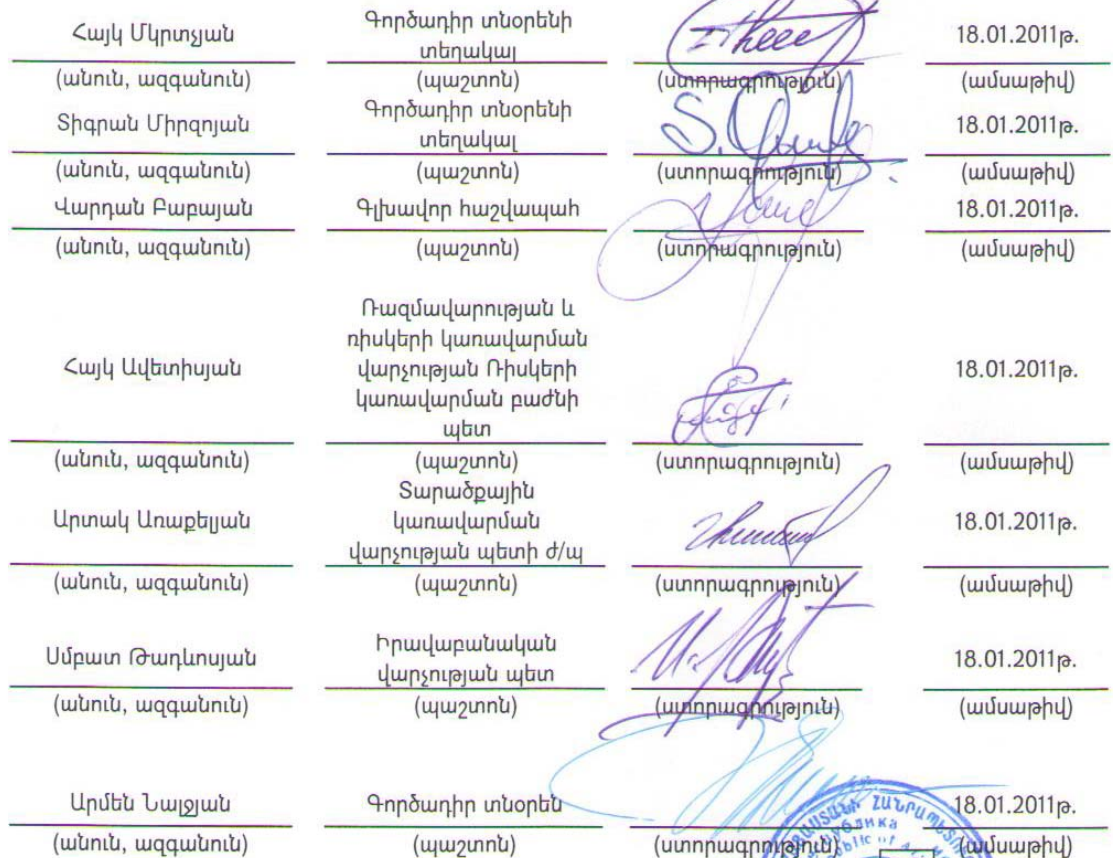 Հայկ Մկրտչյան Գործադիր տնօրենի տեղակալ 18.01.2011թ.
(անուն, ազգանուն) (պաշտոն) (ստորագրություն) (ամսաթիվ)
Տիգրան Միրզոյան Գործադիր տնօրենի տեղակալ 18.01.2011թ.
(անուն, ազգանուն) (պաշտոն) (ստորագրություն) (ամսաթիվ)
Վարդան Բաբայան Գլխավոր հաշվապահ 18.01.2011թ.
(անուն, ազգանուն) (պաշտոն) (ստորագրություն) (ամսաթիվ)
Հայկ Ավետիսյան
Ռազմավարության և
ռիսկերի կառավարման
վարչության Ռիսկերի
կառավարման բաժնի
պետ
18.01.2011թ.
(անուն, ազգանուն) (պաշտոն) (ստորագրություն) (ամսաթիվ)
Արտակ Առաքելյան
Տարածքային
կառավարման
վարչության պետի ժ/պ
18.01.2011թ.
(անուն, ազգանուն) (պաշտոն) (ստորագրություն) (ամսաթիվ)
Սմբատ Թադևոսյան
Իրավաբանական
վարչության պետ
18.01.2011թ.
(անուն, ազգանուն) (պաշտոն) (ստորագրություն) (ամսաթիվ)
Արմեն Նալջյան Գործադիր տնօրեն 18.01.2011թ.
(անուն, ազգանուն) (պաշտոն) (ստորագրություն) (ամսաթիվ)